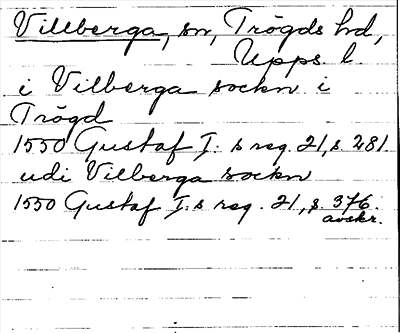 Villberga, sn, Trögds hd,
Upps. l.
i Vilberga sockn i
Trögd
1550 Gustaf I:s reg. 21, s. 281
udi Vilberga sockn
1550 Gustaf I:s reg. 21, s. 376.
avskr.